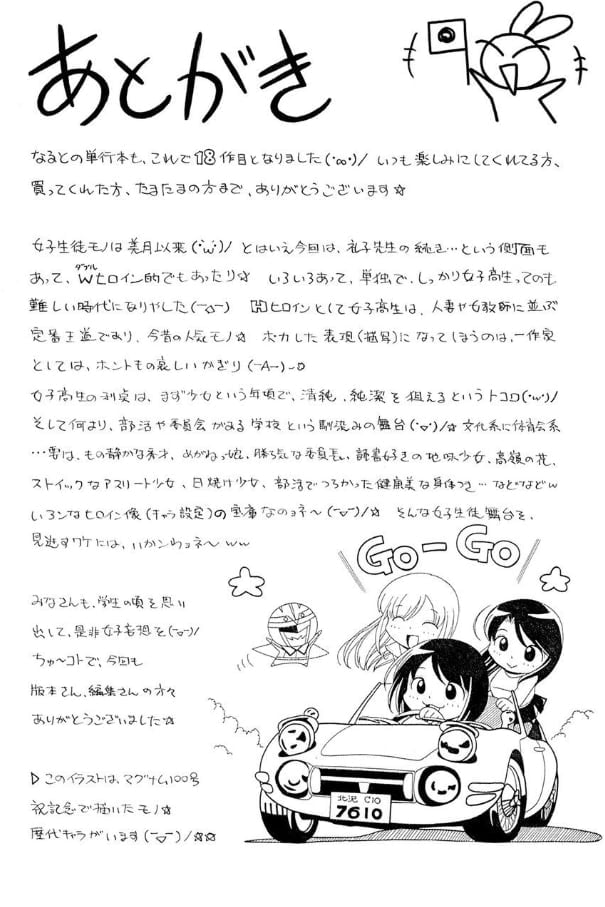 あとがき
なるとの単行本も、これで18作目となりました(･∞･)/ いつも楽しみにしてくれてる方、
買ってくれた方、たまたまの方まで、ありがとうございます☆
女子生徒モノは美月以来(･ω･)/ とはいえ今回は、礼子先生の続き…という側面も
あって、Wヒロイン的でもあったり☆ いろいろあって、単独で、しっかり女子高生ってのも
ダブル
難しい時代になりやした(ーдー) Hヒロインとして女子高生は、人妻や女教師に並ぶ
定番王道であり、今昔の人気モノ☆ ボカした表現(描写)になってしまうのは、一作家
としては、ホントもの哀しいかぎり(ーAー)
女子高生の利点は、まず少女という年頃で、清純、純潔を狙えるというトコロ(･w･)/
そして何より、部活や委員会がある学校という馴染みの舞台(･▽･)/☆ 文化系に体育会系
…更には、もの静かな秀才、めがねっ娘、勝ち気な委員長、読書好きの地味少女、高嶺の花、
ストイックなアスリート少女、日焼け少女、部活でつちかった健康美な身体つき…などなどw
いろンなヒロイン像(キャラ設定)の宝庫なのョネ〜(ー▽ー)/☆ そんな女子生徒舞台を、
見逃すワケには、いかンわョネ〜ww
GO-GO
みなさんも、学生の頃を思い
出して、是非女子妄想を(ー▽ー)/
ちゅ〜コトで、今回も
版本さん、編集さんの方々
ありがとうございました☆
▷このイラストは、マグナム100号
祝記念で描いたモノ☆
歴代キャラがいます(ー▽ー)/☆☆
C10
7610